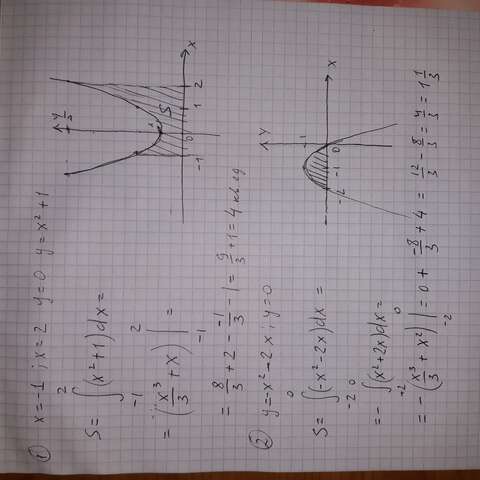 ① x=-1; x=2 y=0 y=x²+1
S = ∫₋₁² (x²+1)dx =
= (x³/3 + x) |₋₁² =
= 8/3 + 2 - -1/3 - -1 = 9/3 + 1 = 4 кв.ед
y
3
S
x
-1 0 1 2
② y=-x²-2x; y=0
S = ∫₋₂⁰ (-x²-2x)dx =
= - ∫₋₂⁰ (x²+2x)dx =
= - (x³/3 + x²) |₋₂⁰ = 0 + -8/3 + 4 = 12/3 - 8/3 = 4/3 = 1 1/3
y
1
x
-2 -1 0